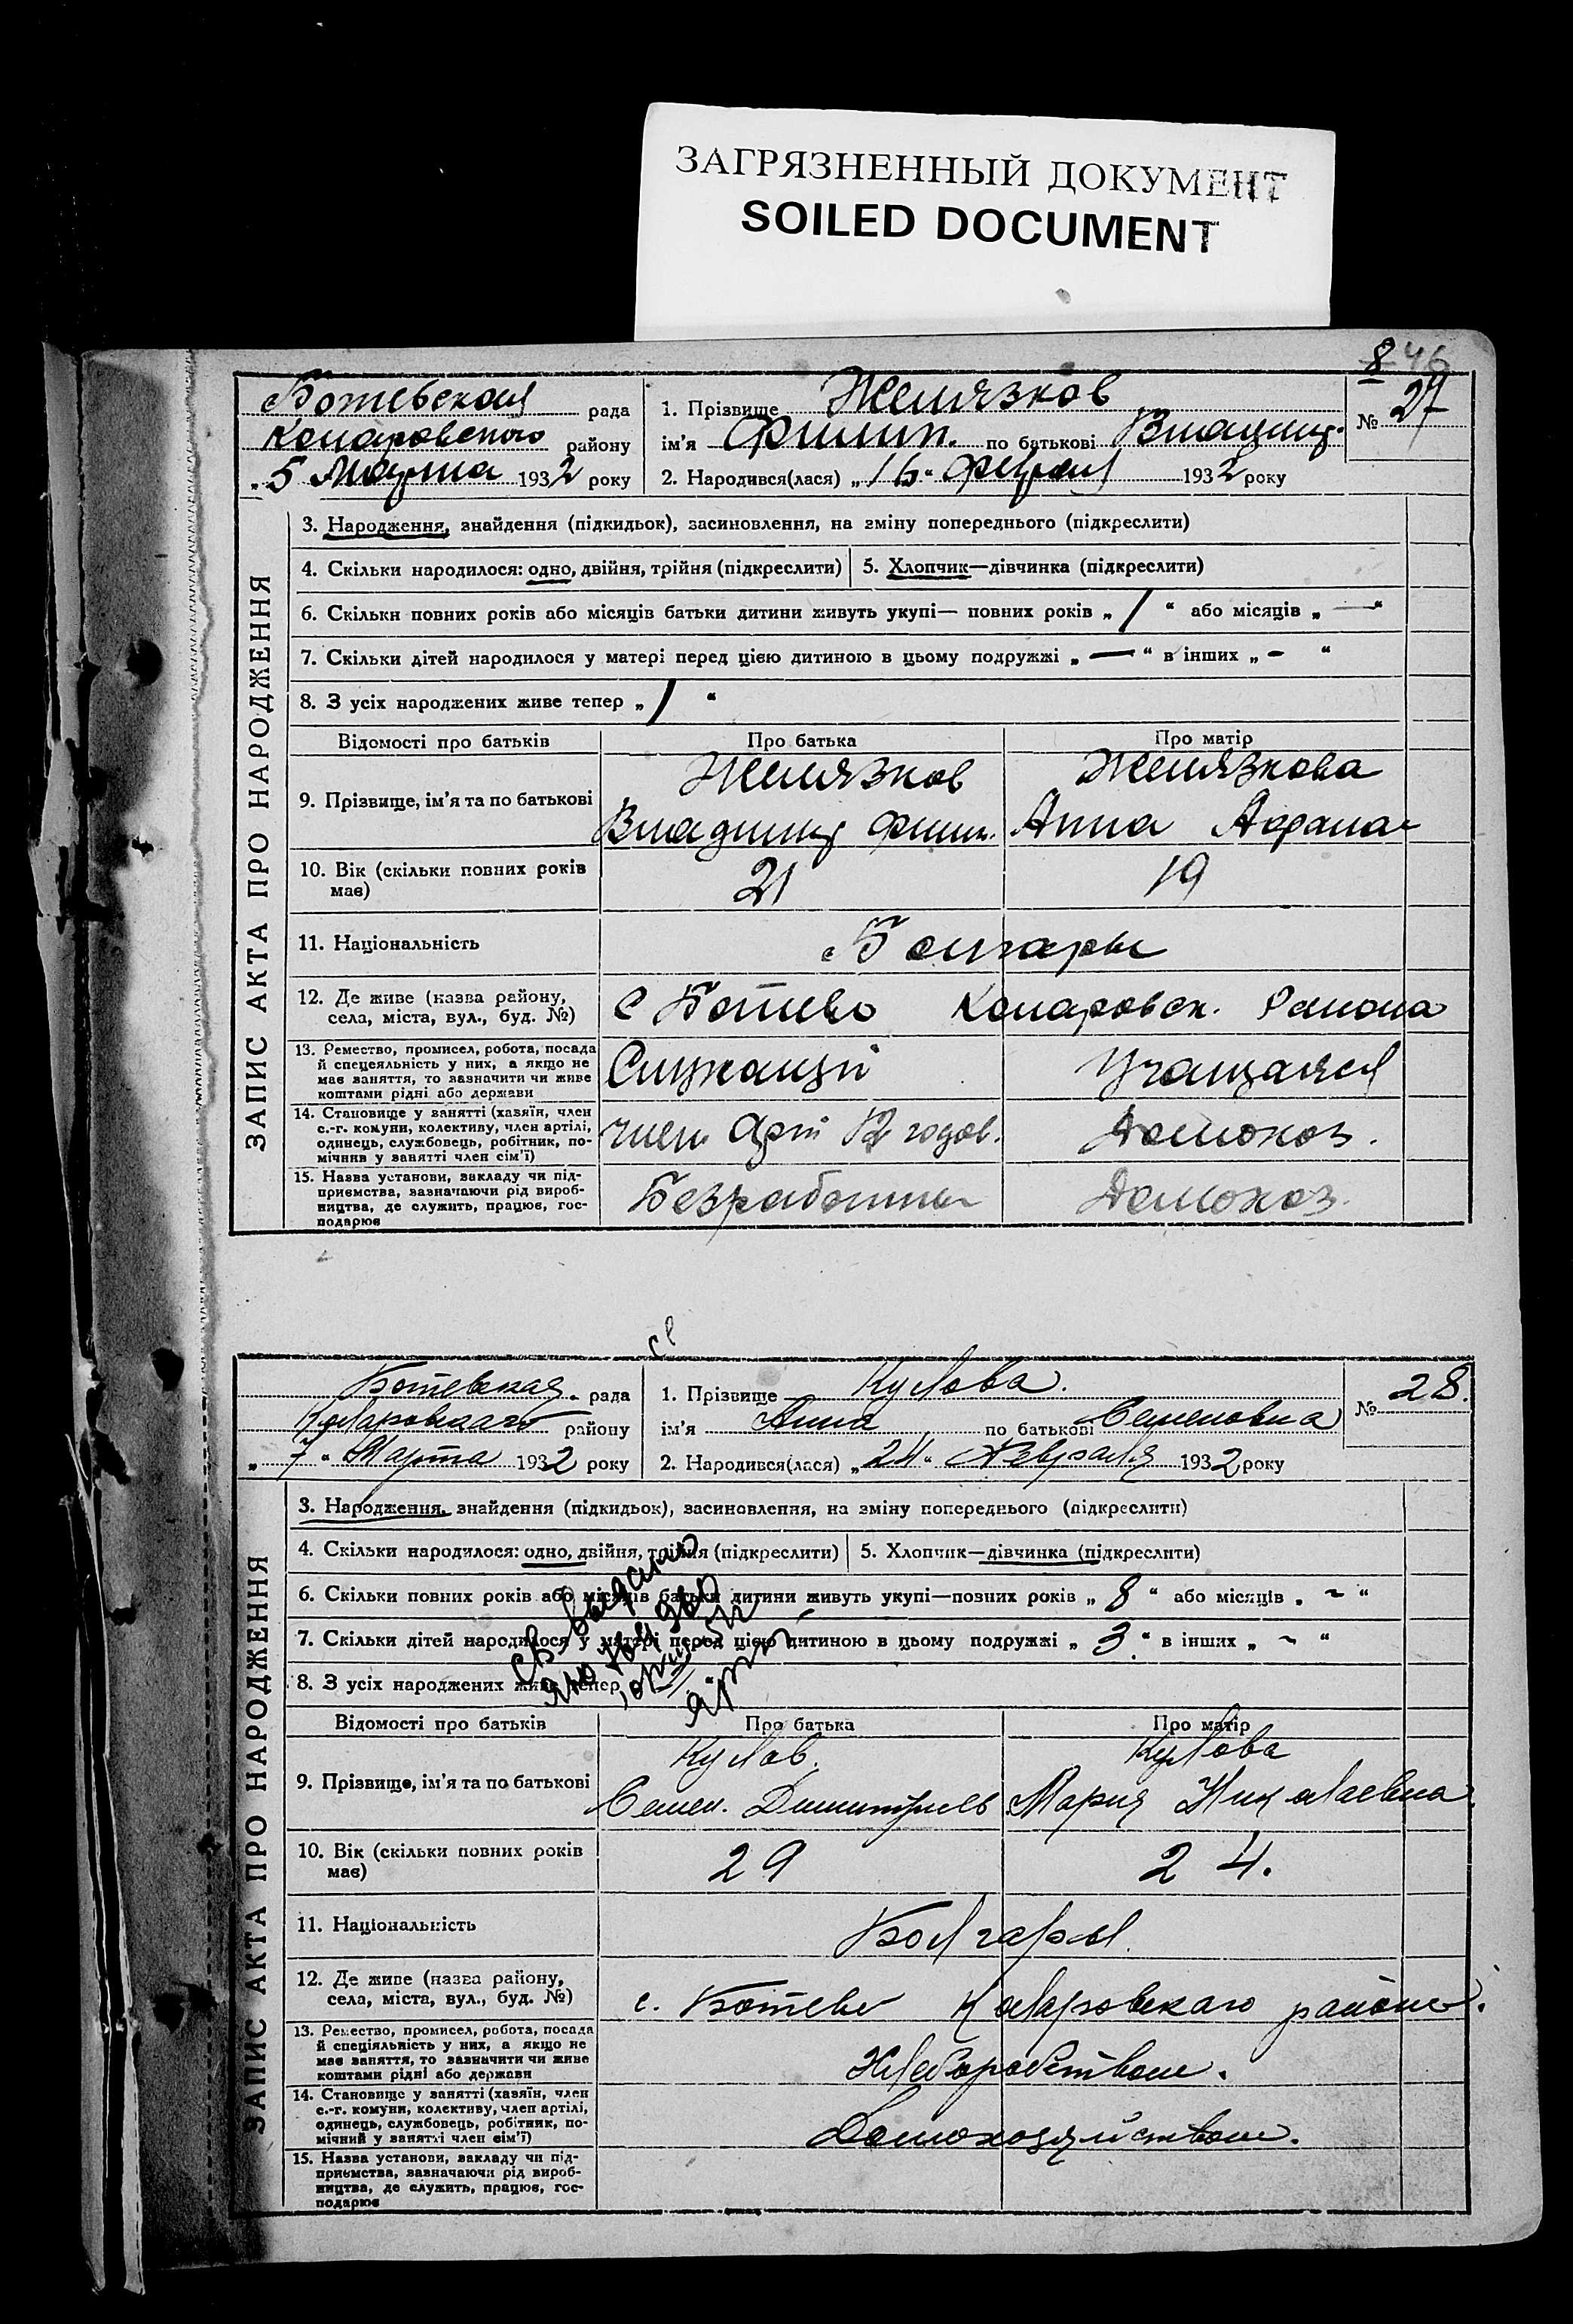 ЗАГРЯЗНЕННЫЙ ДОКУМЕНТ
SOILED DOCUMENT
8 46
Ботевская рада
Коларовского району
„5 Марта 1932 року
1. Прізвище Желязков
ім'я Филип. по батькові Владимир.
2. Народився(лася) „16" Феврал 1932 року
№ 27
ЗАПИС АКТА ПРО НАРОДЖЕННЯ
3. Народження, знайдення (підкидьок), засиновлення, на зміну попереднього (підкреслити)
4. Скільки народилося: одно, двійня, трійня (підкреслити) 5. Хлопчик—дівчинка (підкреслити)
6. Скільки повних років або місяців батьки дитини живуть укупі— повних років „ 1 " або місяців „ — "
7. Скільки дітей народилося у матері перед цією дитиною в цьому подружжі „ — " в інших „ - "
8. З усіх народжених живе тепер „ 1 "
Відомості про батьків Про батька Про матір
9. Прізвище, ім'я та по батькові
Желязков Желязкова
Владимир Филип. Анна
10. Вік (скільки повних років має) 21 19
11. Національність Болгары
12. Де живе (назва району, села, міста, вул., буд. №) С Ботево Коларовск. Района
13. Ремество, промисел, робота, посада
й спеціяльність у них, а якщо не
має заняття, то зазначити чи живе
коштами рідні або держави
Служащий Учащаяся
14. Становище у занятті (хазяїн, член
с.-г. комуни, колективу, член артілі,
одинець, службовець, робітник, по-
мічнив у занятті член сім'ї)
член Арт Домохоз.
15. Назва установи, закладу чи під-
приємства, зазначаючи рід вироб-
ництва, де служить, працює, гос-
подарює
Безработны Домохоз.
Ботевская рада
Коларовскаго району
„ 7 " Марта 1932 року
1. Прізвище Кулова.
ім'я Анна по батькові Семеновна
2. Народився(лася) „24" Февраля 1932 року
№ 28.
ЗАПИС АКТА ПРО НАРОДЖЕННЯ
3. Народження, знайдення (підкидьок), засиновлення, на зміну попереднього (підкреслити)
4. Скільки народилося: одно, двійня, трійня (підкреслити) 5. Хлопчик—дівчинка (підкреслити)
6. Скільки повних років або місяців батьки дитини живуть укупі—повних років „ 8 " або місяців „ ~ "
7. Скільки дітей народилося у матері перед цією дитиною в цьому подружжі „ 3. " в інших „ ~ "
8. З усіх народжених живе тепер
Відомості про батьків Про батька Про матір
9. Прізвище, ім'я та по батькові
Кулов. Кулова
Семен. Димитриев Мария Николаевна
10. Вік (скільки повних років має) 29 24.
11. Національність Болгары.
12. Де живе (назва району, села, міста, вул., буд. №) с. Ботево Коларовскаго района.
13. Ремество, промисел, робота, посада
й спеціяльність у них, а якщо не
має заняття, то зазначити чи живе
коштами рідні або держави
Хлеборобством.
14. Становище у занятті (хазяїн, член
с.-г. комуни, колективу, член артілі,
одинець, службовець, робітник, по-
мічний у занятті член сім'ї)
Домохозяйством.
15. Назва установи, закладу чи під-
приємства, зазначаючи рід вироб-
ництва, де служить, працює, гос-
подарює